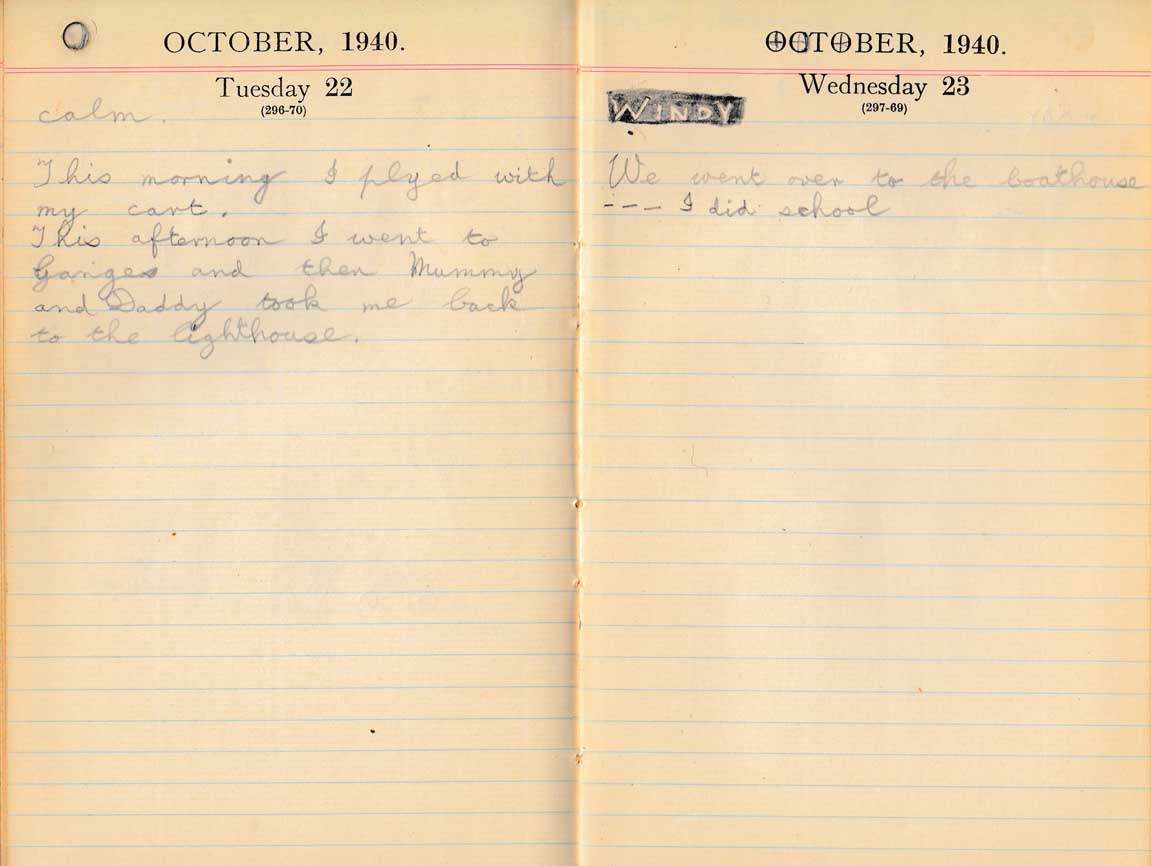 OCTOBER, 1940.
Tuesday 22
(296-70)
calm.
This morning I plyed with
my cart.
This afternoon I went to
Ganges and then Mummy
and Daddy took me back
to the lighthouse.
OCTOBER, 1940.
Wednesday 23
(297-69)
WINDY
We went over to the boathouse
--- I did school